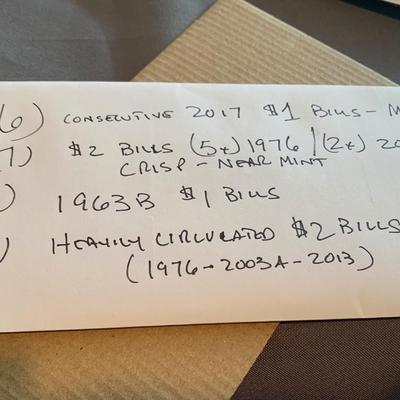 6) CONSECUTIVE 2017 $1 BILLS - M
7) $2 BILLS (5x) 1976 / (2x) 20
CRISP - NEAR MINT
) 1963B $1 BILLS
) HEAVILY CIRCULATED $2 BILLS
(1976 - 2003A - 2013)